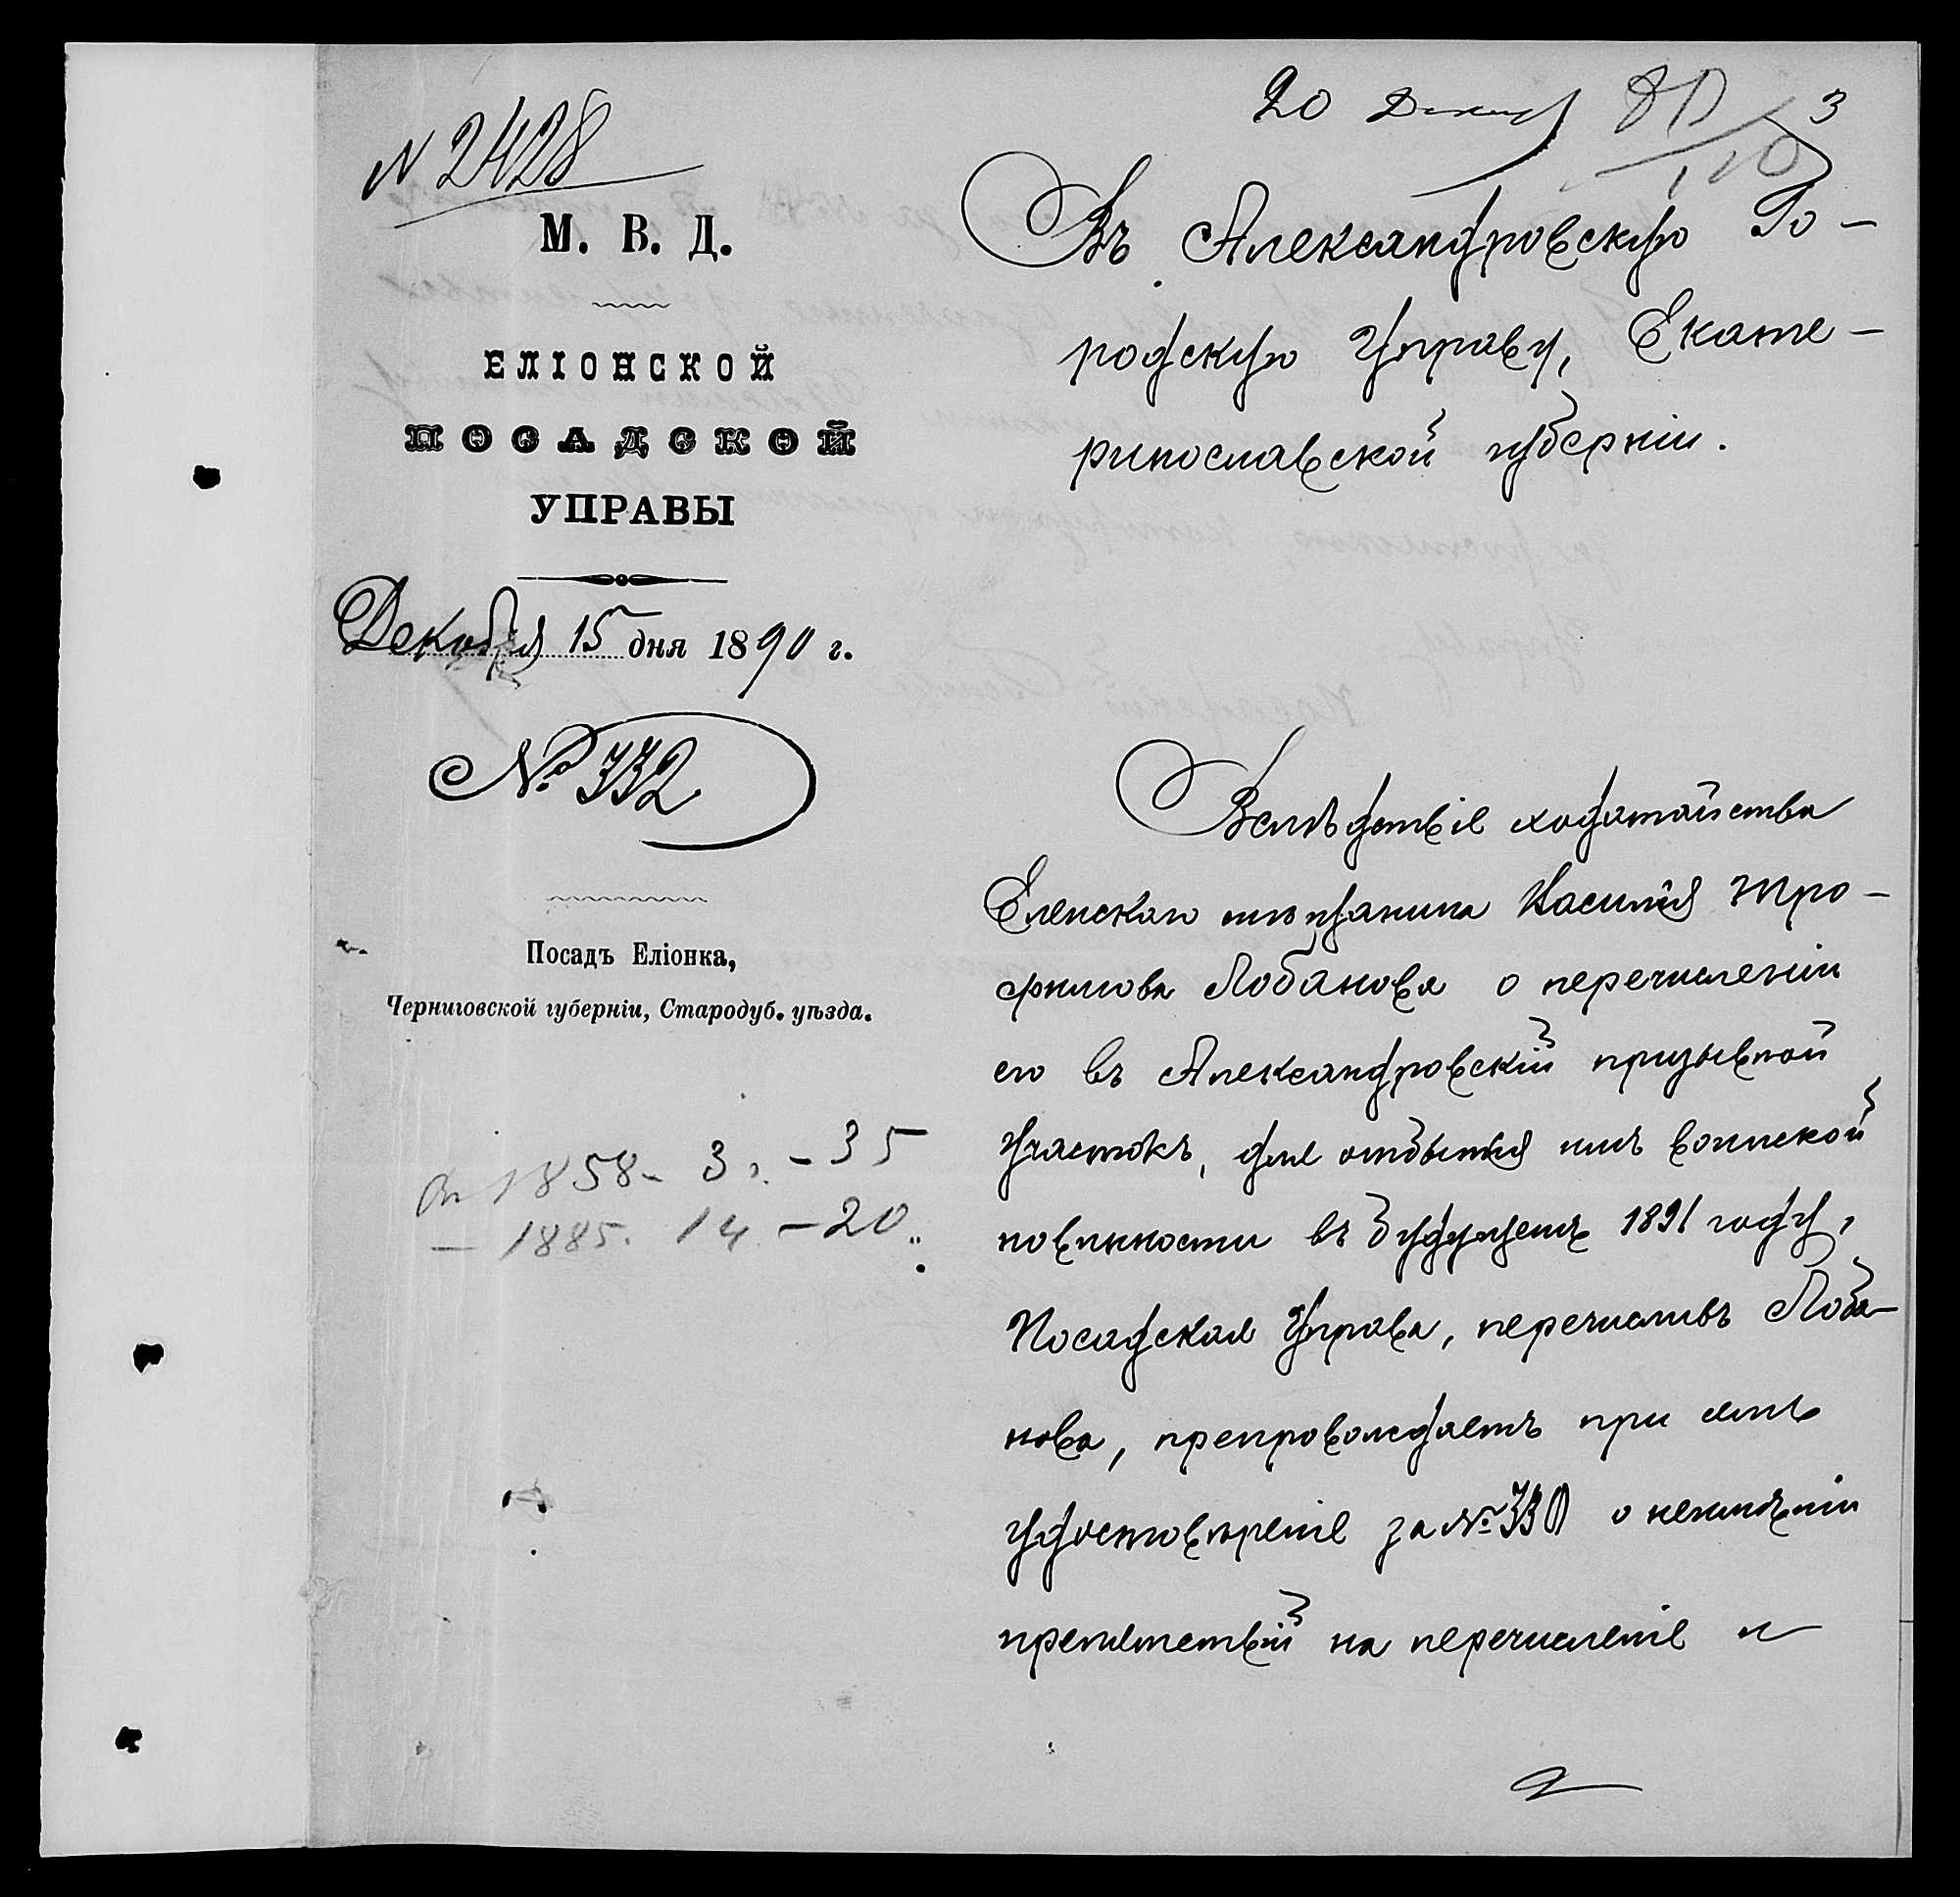 N 2428
М. В. Д.
ЕЛІОНСКОЙ
ПОСАДСКОЙ
УПРАВЫ
Декабря 15 дня 1890 г.
№ 332
Посадъ Еліонка,
Черниговской губерніи, Стародуб. уѣзда.
1858 - 3 - 35
- 1885. 14 - 20
20 3
Въ Александровскую Го-
родскую Управу, Екате-
ринославской губерніи.
Вслѣдствіе ходатайства
Еленскаго мѣщанина Василія Тро-
фимова Лобанова о перечисленіи
его въ Александровскій призывной
участокъ, для отбытія имъ воинской
повинности въ будущемъ 1891 году,
Посадская Управа, перечисливъ Лоба-
нова, препровождаетъ при семъ
удостовѣреніе за № 330 о неимѣніи
препятствій на перечисленіе и